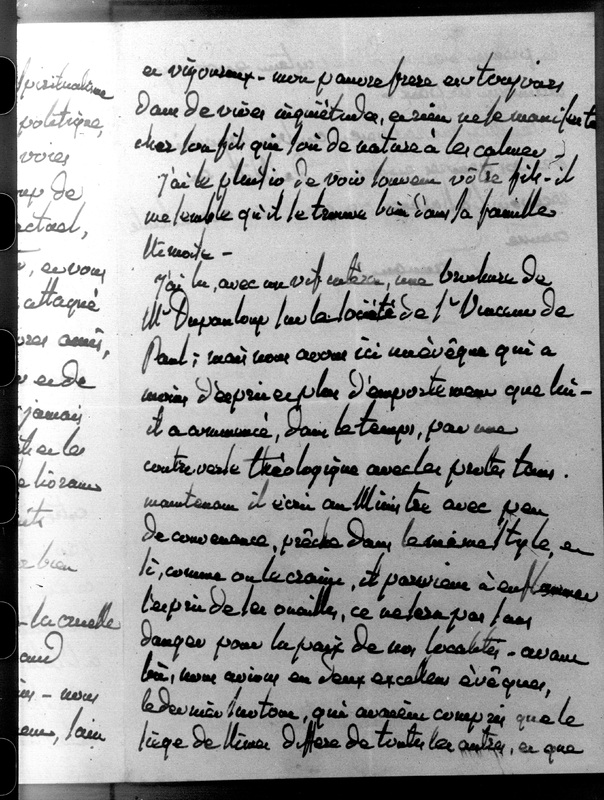 Spiritualisme
politique,
voies
de
actuel,
et vous
attaqué
amis,
et de
jamais
et les
bien
la cruelle
nous
et vigoureux - mon pauvre frere est toujours
dans de vives inquiétudes, et rien ne se manifeste
chez son fils qui soit de nature à les calmer.
j'ai le plaisir de voir souvent vôtre fils - il
me semble qu'il se trouve bien dans sa famille
Nimoise -
j'ai lu, avec un vif intérêt, une brochure de
Mr Dupanloup sur la société de St Vincent de
Paul; mais nous avons ici un évêque qui a
moins d'esprit et plus d'emportement que lui -
il a commencé, dans le temps, par une
controverse théologique avec les protestans.
maintenant il écrit au Ministre avec peu
de convenance, prêche dans le même style, et
si, comme on le craint, il parvient à enflammer
l'esprit de ses ouailles, ce ne sera pas sans
danger pour la paix de nos localités - avant
lui, nous avions eu deux excellens évêques,
le dernier surtout, qui avaient compris que le
siège de Nimes differe de toutes les autres, et que